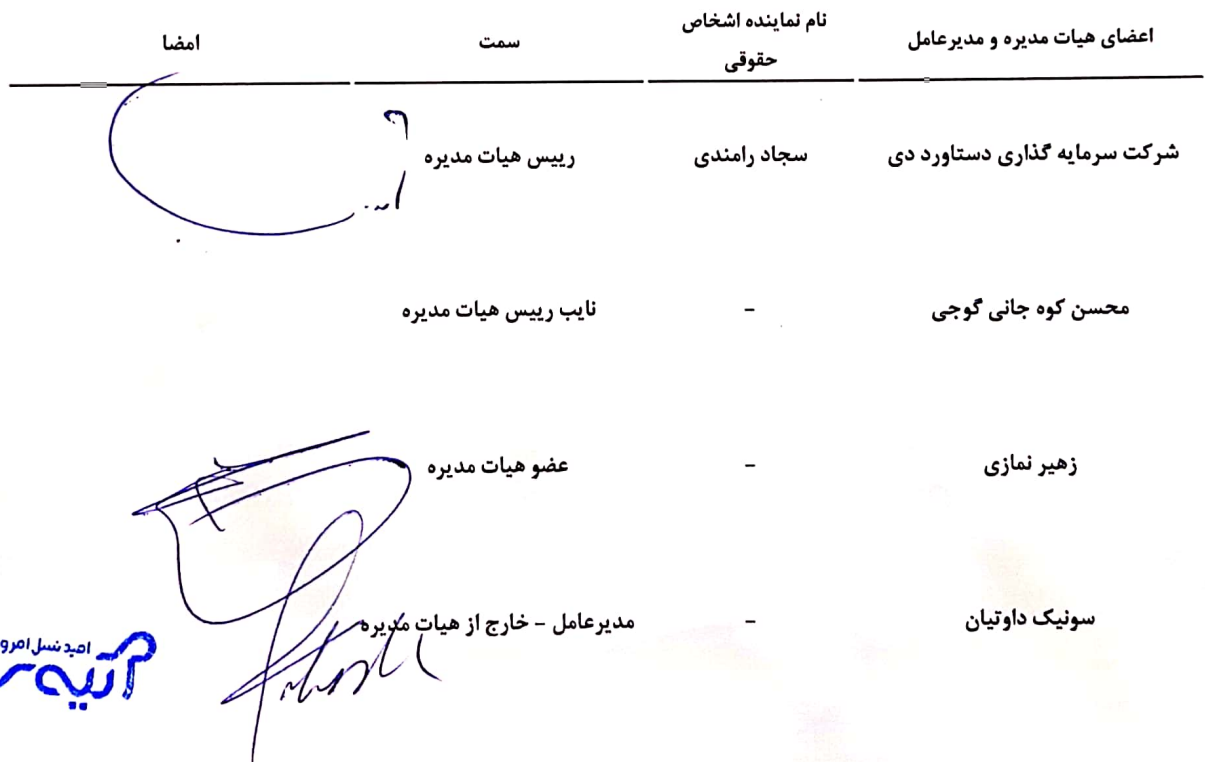 اعضای هیات مدیره و مدیرعامل نام نماینده اشخاص حقوقی سمت امضا
شرکت سرمایه گذاری دستاورد دی سجاد رامندی رییس هیات مدیره
محسن کوه جانی گوجی - نایب رییس هیات مدیره
زهیر نمازی - عضو هیات مدیره
سونیک داوتیان - مدیرعامل - خارج از هیات مدیره
امید نسل امرو